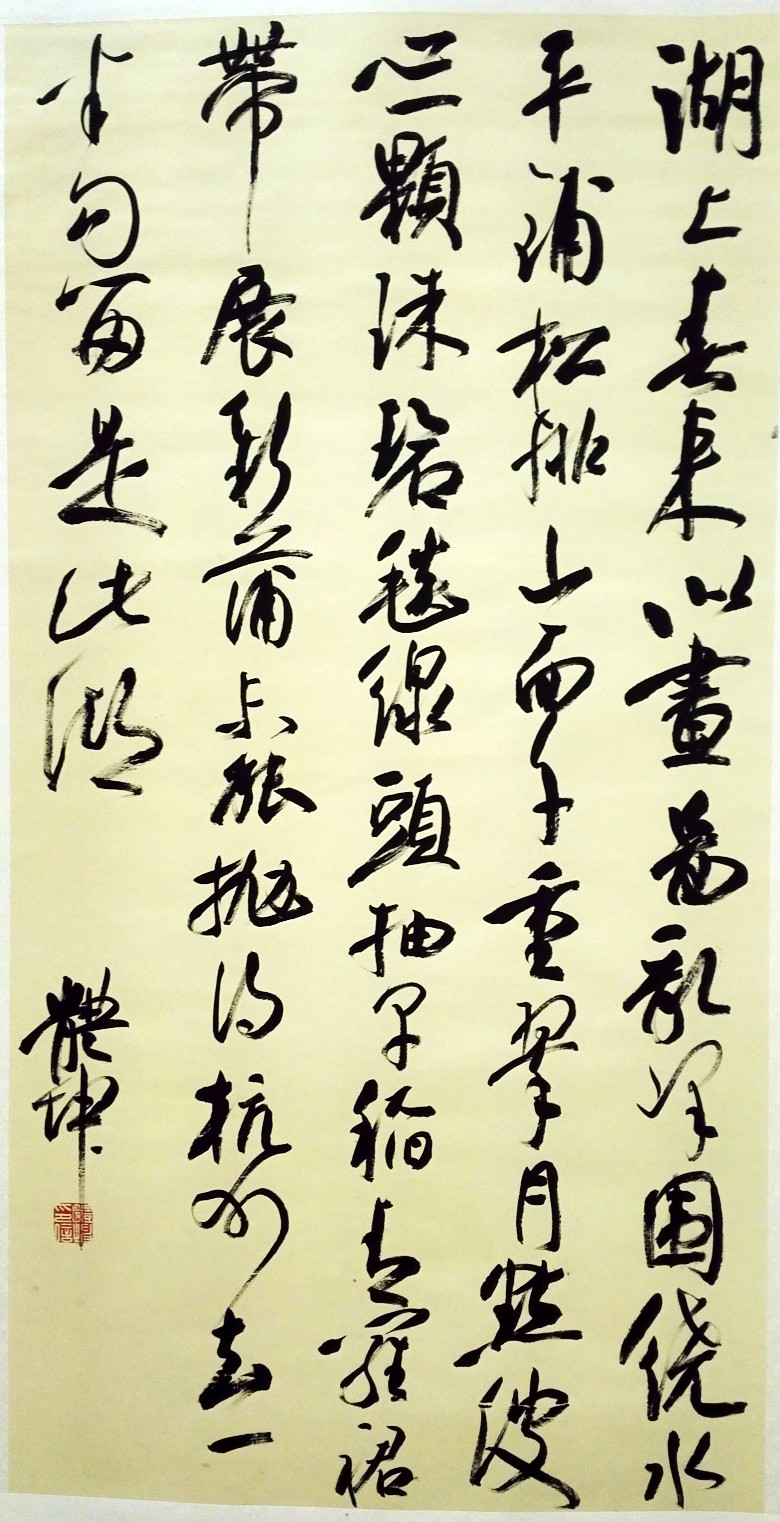 湖上春来似畫圖亂峰圍繞水
平鋪松排山面千重翠月點波
心一顆珠碧毯線頭抽早稻青羅裙
帶展新蒲未能抛得杭州去一
半勾留是此湖
體坤